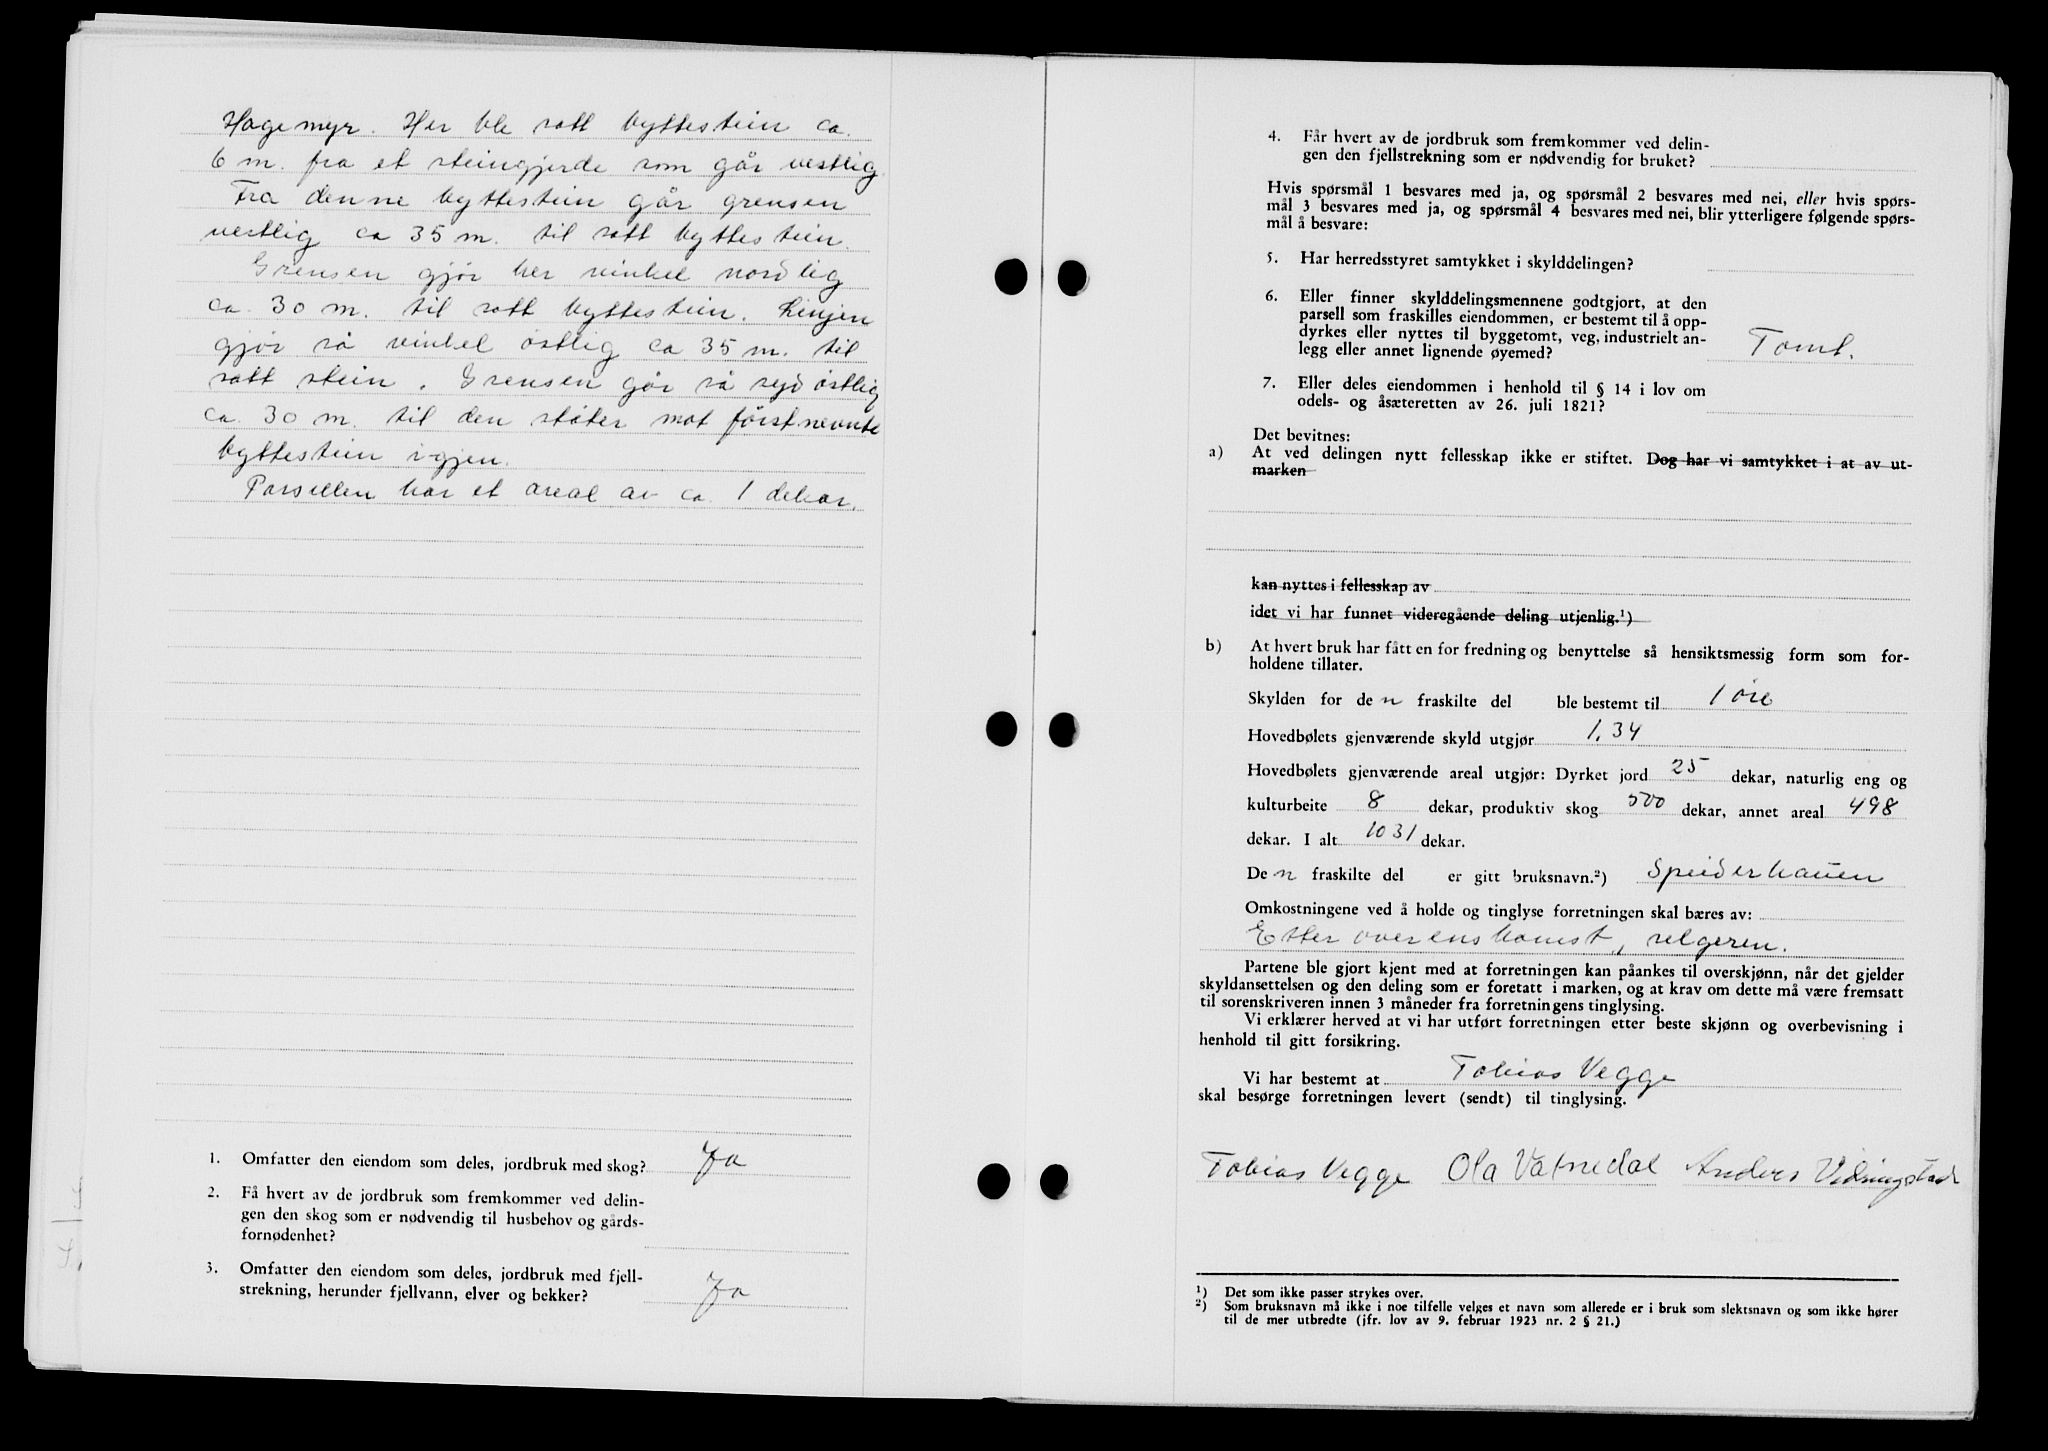 Hagemyr. Her ble satt byttestein ca.
6 m. fra et steingjerde som går vestlig.
Fra denne byttestein går grensen
vestlig ca 35 m. til satt byttestein.
Grensen gjør her vinkel nordlig
ca. 30 m. til satt byttestein. Linjen
gjør så vinkel østlig ca 35 m. til
satt stein. Grensen går så syd østlig
ca. 30 m. til den støter mot førstnevnte
byttestein igjen.
Parsellen har et areal av ca. 1 dekar.
1. Omfatter den eiendom som deles, jordbruk med skog? Ja
2. Få hvert av de jordbruk som fremkommer ved delin-
gen den skog som er nødvendig til husbehov og gårds-
fornødenhet?
3. Omfatter den eiendom som deles, jordbruk med fjell-
strekning, herunder fjellvann, elver og bekker? Ja
4. Får hvert av de jordbruk som fremkommer ved delin-
gen den fjellstrekning som er nødvendig for bruket?
Hvis spørsmål 1 besvares med ja, og spørsmål 2 besvares med nei, eller hvis spørs-
mål 3 besvares med ja, og spørsmål 4 besvares med nei, blir ytterligere følgende spørs-
mål å besvare:
5. Har herredsstyret samtykket i skylddelingen?
6. Eller finner skylddelingsmennene godtgjort, at den
parsell som fraskilles eiendommen, er bestemt til å opp-
dyrkes eller nyttes til byggetomt, veg, industrielt an-
legg eller annet lignende øyemed? Tomt.
7. Eller deles eiendommen i henhold til § 14 i lov om
odels- og åsæteretten av 26. juli 1821?
Det bevitnes:
a) At ved delingen nytt fellesskap ikke er stiftet. Dog har vi samtykket i at av ut-
marken
kan nyttes i fellesskap av
idet vi har funnet videregående deling utjenlig.¹)
b) At hvert bruk har fått en for fredning og benyttelse så hensiktsmessig form som for-
holdene tillater.
Skylden for den fraskilte del ble bestemt til 1 øre
Hovedbølets gjenværende skyld utgjør 1.34
Hovedbølets gjenværende areal utgjør: Dyrket jord 25 dekar, naturlig eng og
kulturbeite 8 dekar, produktiv skog 500 dekar, annet areal 498
dekar. I alt 1031 dekar.
Den fraskilte del er gitt bruksnavn.²) Speiderhauen
Omkostningene ved å holde og tinglyse forretningen skal bæres av:
Etter overenskomst, selgeren.
Partene ble gjort kjent med at forretningen kan påankes til overskjønn, når det gjelder
skyldansettelsen og den deling som er foretatt i marken, og at krav om dette må være fremsatt
til sorenskriveren innen 3 måneder fra forretningens tinglysing.
Vi erklærer herved at vi har utført forretningen etter beste skjønn og overbevisning i
henhold til gitt forsikring.
Vi har bestemt at Tobias Vegge
skal besørge forretningen levert (sendt) til tinglysing.
Tobias Vegge Ola Vatnedal Anders Vidringstad
¹) Det som ikke passer strykes over.
²) Som bruksnavn må ikke i noe tilfelle velges et navn som allerede er i bruk som slektsnavn og som ikke hører
til de mer utbredte (jfr. lov av 9. februar 1923 nr. 2 § 21.)